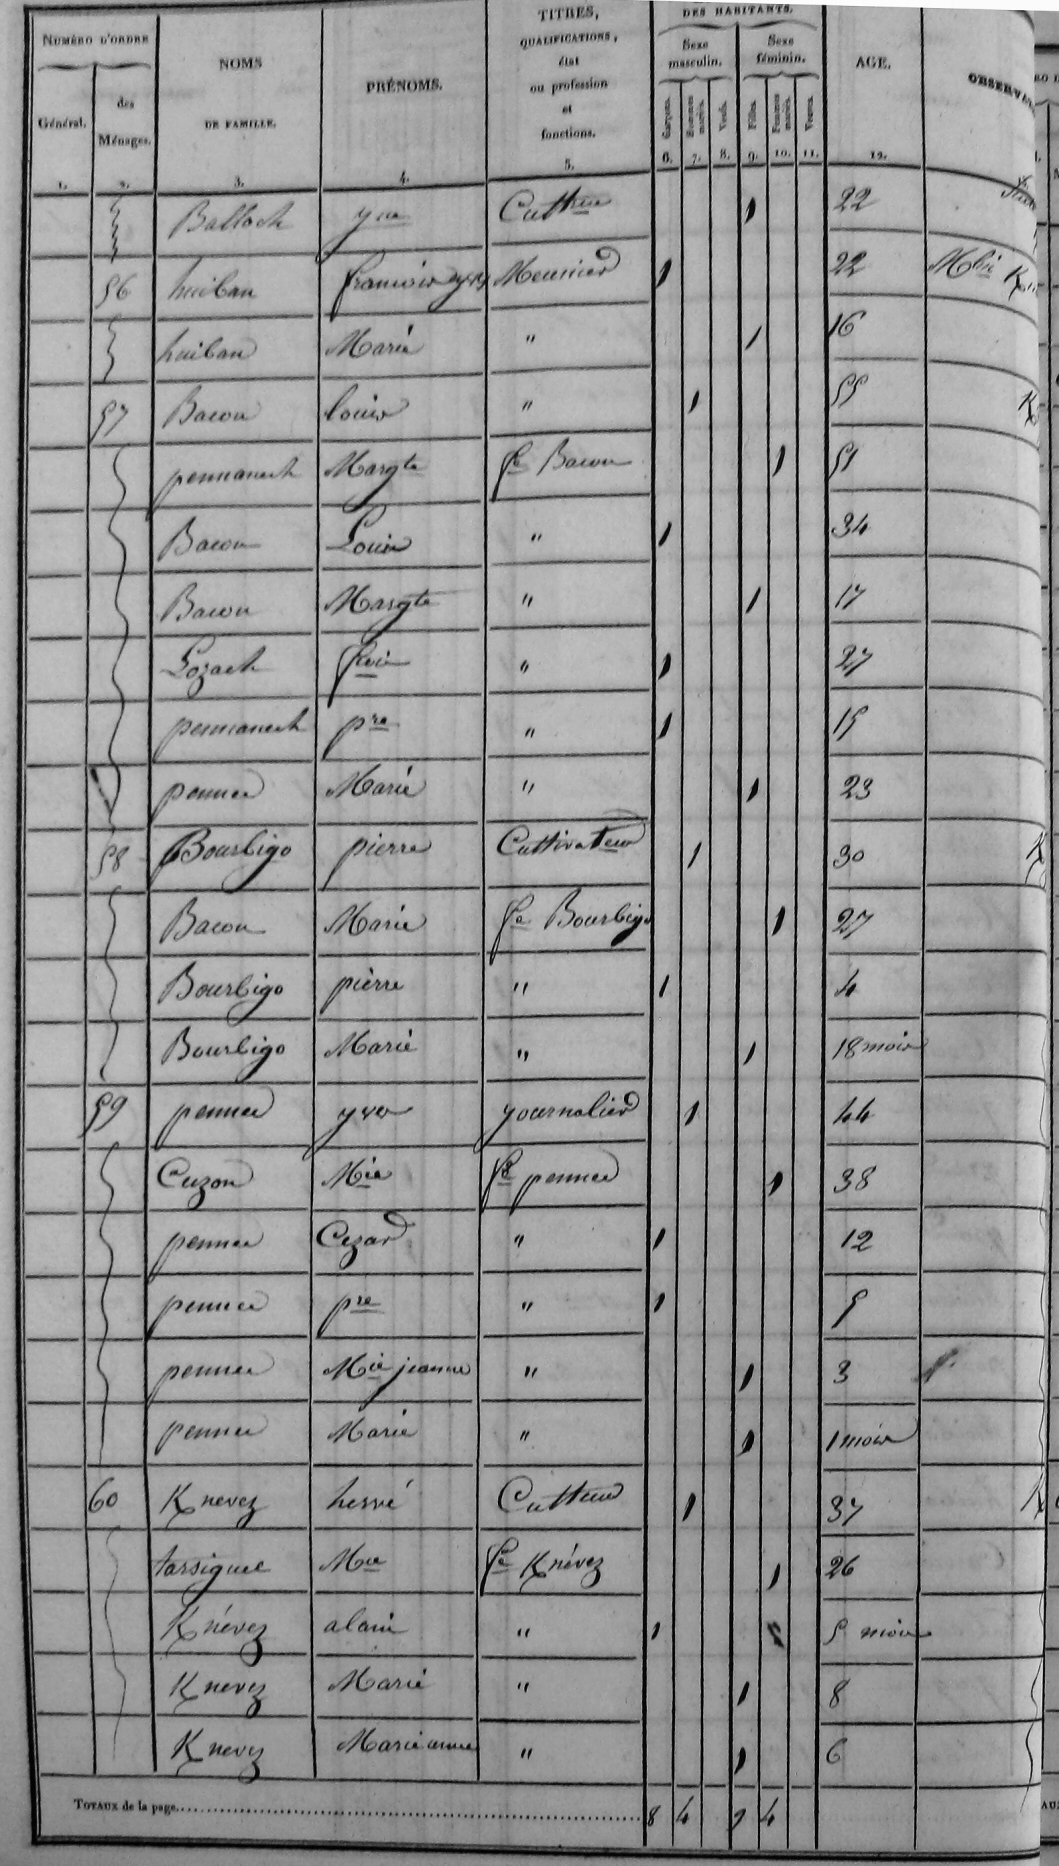 NUMÉRO D'ORDRE
Général. des Ménages.
NOMS DE FAMILLE.
PRÉNOMS.
TITRES, QUALIFICATIONS, état ou profession et fonctions.
DES HABITANTS.
Sexe masculin. Sexe féminin.
Garçons. Hommes mariés. Veufs. Filles. Femmes mariées. Veuves.
AGE.
1. 2. 3. 4. 5. 6. 7. 8. 9. 10. 11. 12.
Balloch yne 1 22
56 huiban francois Meunier 1 22 Mlin
huiban Marie " 1 16
57 Bacon louis " 1 55
pennanech Margte fe Bacon 1 51
Bacon Louis " 1 34
Bacon Margte " 1 17
Lozach " 1 27
pennanech pre " 1 15
pennec Marie " 1 23
58 Bourbigo pierre Cultivateur 1 30
Bacon Marie fe Bourbigo 1 27
Bourbigo pierre " 1 4
Bourbigo Marie " 1 18 mois
59 pennec yves journalier 1 44
Cuzon Mie fe pennec 1 38
pennec Cezar " 1 12
pennec pre " 1 5
pennec Mie jeanne " 1 3
pennec Marie " 1 1 mois
60 Knevez hervé Cultteur 1 37
tarsiguel Mie fe Knévez 1 26
Knévez alain " 1 5 mois
Knevez Marie " 1 8
Knevez Marie anne " 1 6
TOTAUX de la page 8 4 9 4